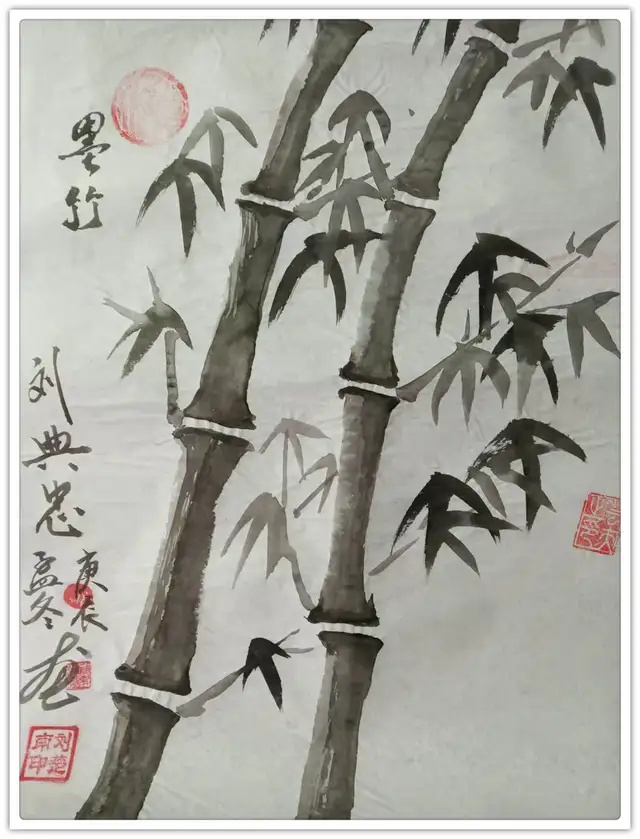 墨竹
刘典忠
庚辰
孟冬
画